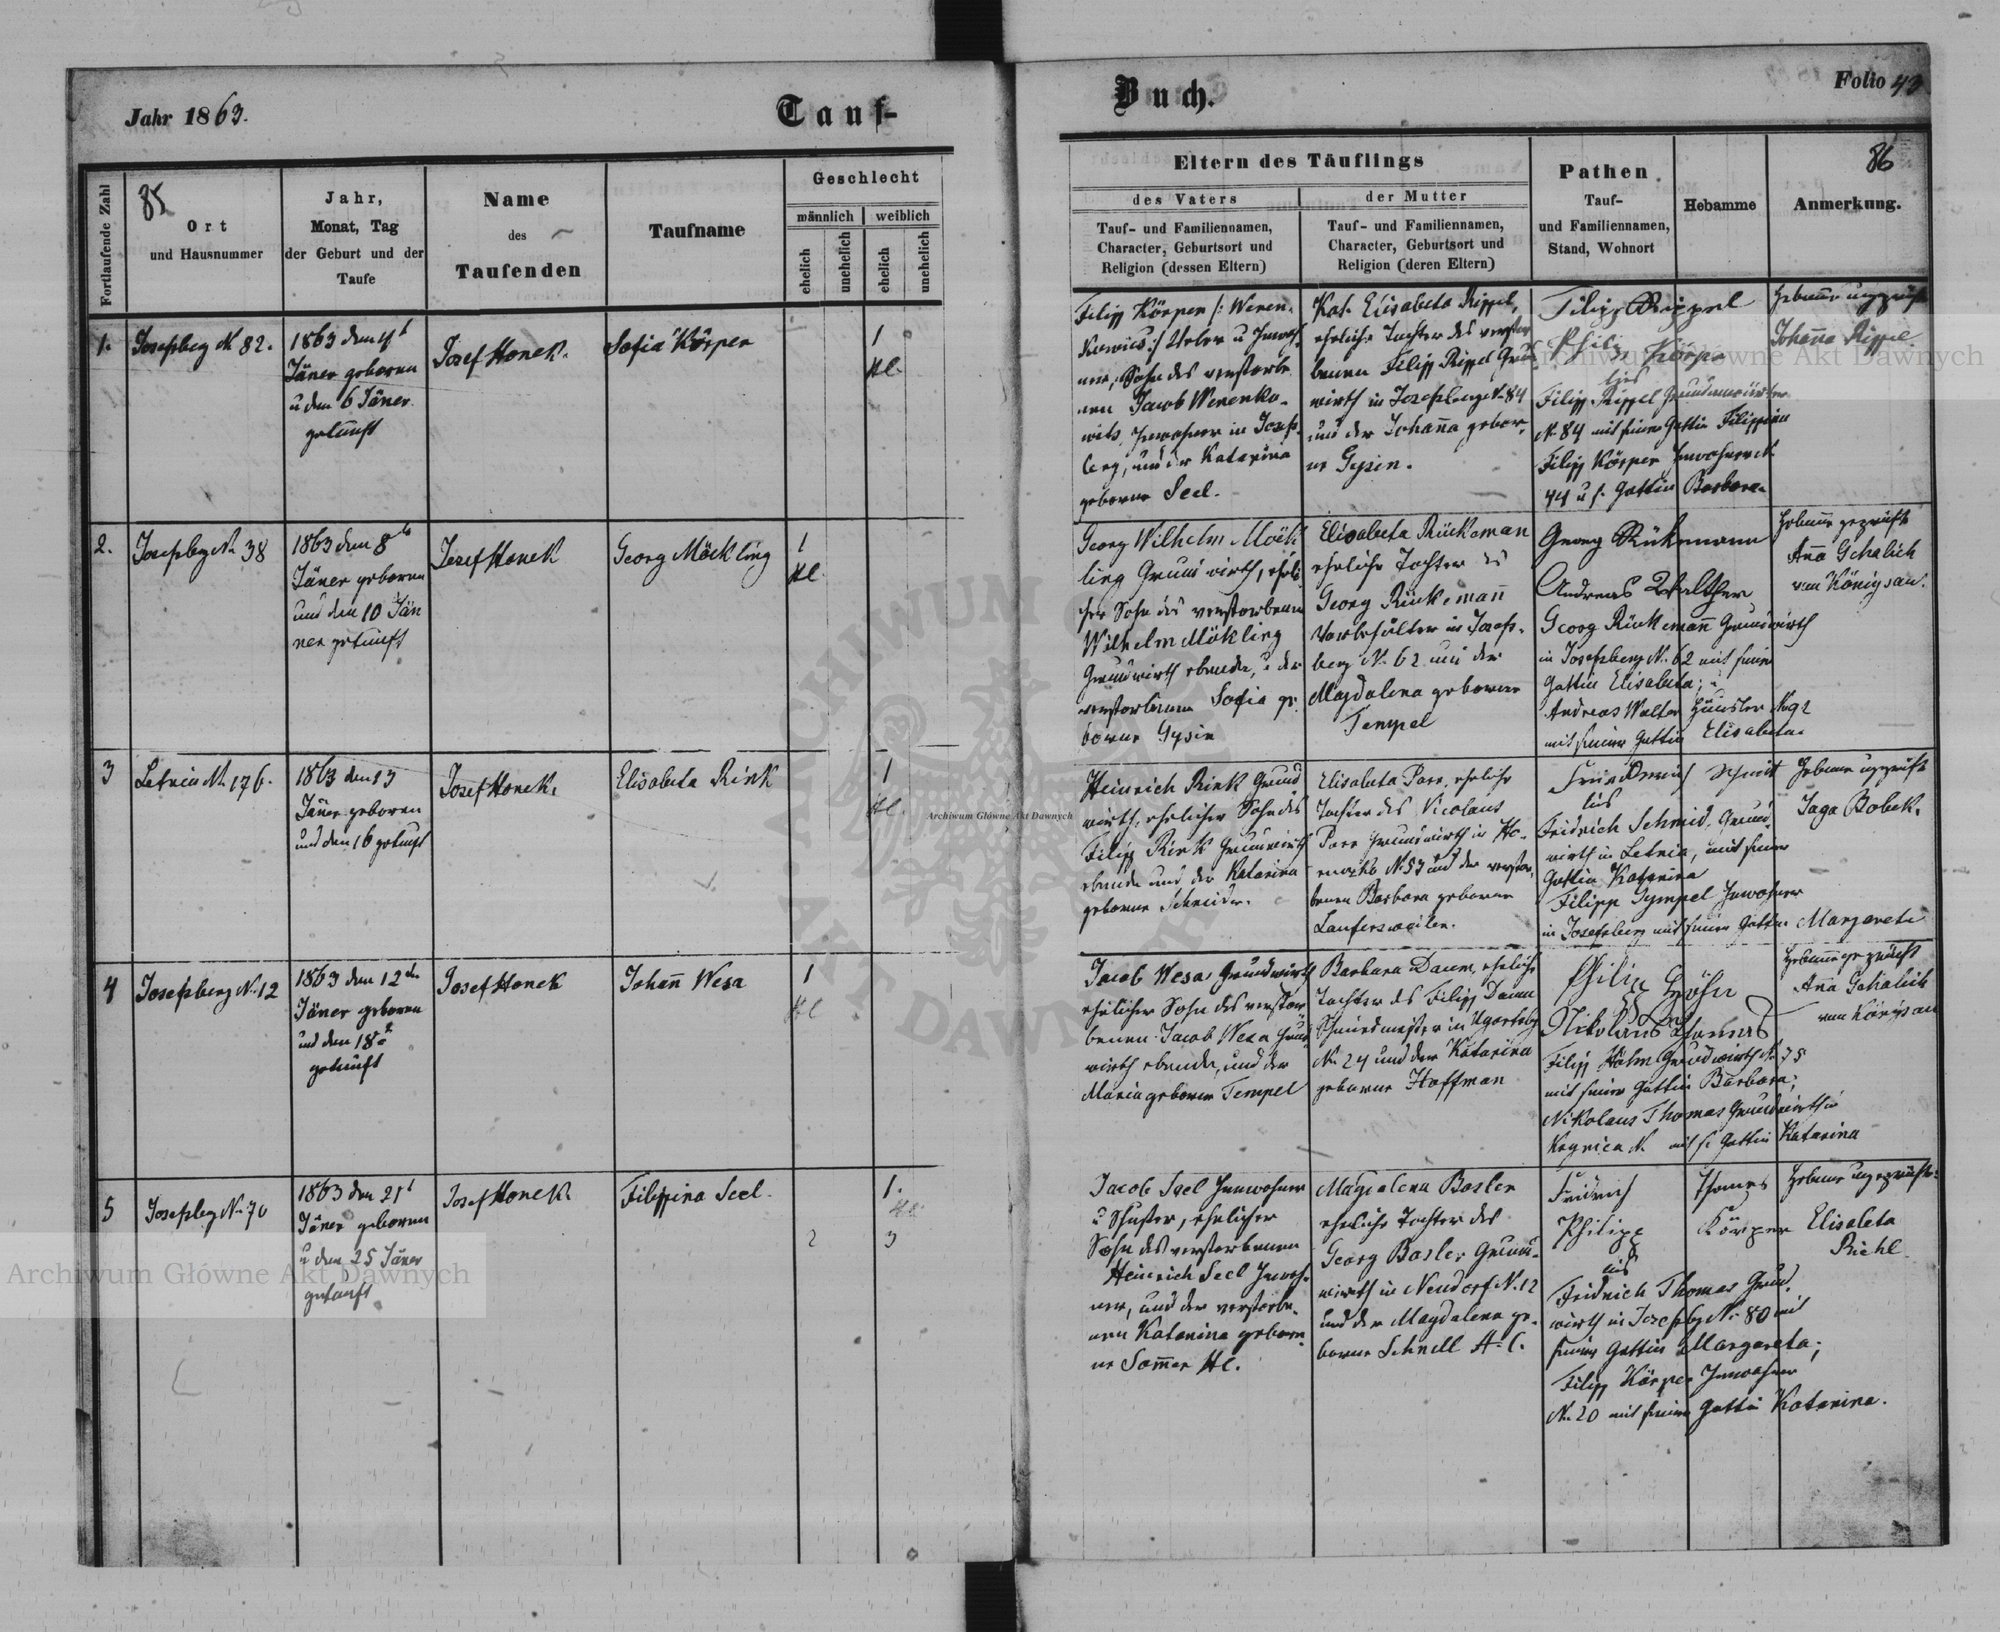 Jahr 1863.
Tauf-
Buch.
Folio 43
85
86
Fortlaufende Zahl
Ort
und Hausnummer
Jahr,
Monat, Tag
der Geburt und der
Taufe
Name
des
Taufenden
Taufname
Geschlecht
männlich
weiblich
ehelich
unehelich
ehelich
unehelich
Eltern des Täuflings
des Vaters
der Mutter
Tauf- und Familiennamen,
Character, Geburtsort und
Religion (dessen Eltern)
Tauf- und Familiennamen,
Character, Geburtsort und
Religion (deren Eltern)
Pathen
Tauf-
und Familiennamen,
Stand, Wohnort
Hebamme
Anmerkung.
1.
Josefsbeg N. 82.
1863 den 4t
Jäner geboren
u den 6 Jäner
getauft
Josef Honek.
Sofia Körper
1
HC.
Filipp Körper
ner, Sohn des verstorbe
nen Jacob Werenko-
wits, Inwohner in Josefs-
berg, und der Katarina
geborne Seel.
Kat. Elisabeta Rippel,
eheliche Tochter des verstor
benen Filipp Rippel Grund
wirth in Josefsberg N. 84
und der Johanna gebor-
ne Gysin.
Filipp Rippel
Philip Körper
Filipp Rippel
N. 84 mit seiner Gattin Filippina
Filipp Körper Inwohner N.
44 u s. Gattin Barbara.
Johanna Rippel.
2.
Josefsbeg N. 38
1863 den 8ts
Jäner geboren
und den 10 Jän
ner getauft
Josef Honek
Georg Möckling
1
HC
Georg Wilhelm Möck
ling Grundwirth, eheli
cher Sohn des verstorbenen
Wilhelm Mökling
Grundwirth ebenda, u der
verstorbenen Sofia ge
borne Gysin
Elisabeta Rückeman
eheliche Tochter des
Georg Rückemann
in Josefs-
berg N. 62 und der
Magdalena geborne
Tempel
Georg Rükemann
Andreas Walther
Georg Rückemann Grundwirth
in Josefsberg N. 62 mit seiner
Gattin Elisabeta;
Andreas Walter Häusler N. 92
mit seiner Gattin Elisabeta.
Hebamme geprüft
Anna Schalich
von Königsau.
3
Letnia N. 176.
1863 den 13
Jäner geboren
und den 16 getauft
Josef Honek.
Elisabeta Rink
1
HC.
Heinrich Rink Grund
wirth, ehelicher Sohn des
Filipp Rink Grundwirth
ebenda und der Katarina
geborne Schneider.
Elisabeta Parr, eheliche
Tochter des Nicolaus
Parr Grundwirth in
N. 53 und der verstor-
benen Barbara geborne
Laufersweiler.
Fridrich Schmid, Grund-
wirth in Letnia, mit seiner
Gattin Katarina
Filipp Gympel Inwohner
in Josefsberg mit seiner Gattin Margareta
Jaga Bobek.
4
Josefsberg N. 12
1863 den 12ten
Jäner geboren
und den 18t
getauft
Josef Honek
Johann Wesa
1
HC
Jacob Wesa, Grundwirth
ehelicher Sohn des verstor
benen Jacob Wesa Grund
wirth ebenda, und der
Maria geborne Tempel
Barbara Daum, eheliche
Tochter des Filipp Daum
Schmiedmeister in Ugartsbg
N. 24 und der Katarina
geborne Hoffman
Nikolaus Thomas
mit seiner Gattin Barbara;
Nikolaus Thomas Grundwirth in
mit s. Gattin Katarina
Hebamme geprüft
Anna Schalich
von Königsau
5
Josefsbeg N. 70
1863 den 21t
Jäner geboren
u den 25 Jäner
getauft
Josef Honek.
Filippina Seel.
1.
HC.
2
3
Jacob Seel Inwohner
u Schuster, ehelicher
Sohn des verstorbenen
Heinrich Seel Inwoh-
ner, und der verstorbe-
nen Katarina gebor-
ne Sommer HC.
Magdalena Bosler
eheliche Tochter des
Georg Bosler Grund-
wirth in Neudorf N. 12
und der Magdalena ge-
borne Schnell A. C.
Fridrich Thomas
Philipp Körper
Fridrich Thomas Grund-
wirth in Josefsbg N. 80 mit
seiner Gattin Margareta;
Filipp Körper Inwohner
N. 20 mit seiner Gattin Katarina.
Elisabeta
Richl
Archiwum Główne Akt Dawnych
Archiwum Główne Akt Dawnych
Archiwum Główne Akt Dawnych
ARCHIWUM
AKT DAWNYCH